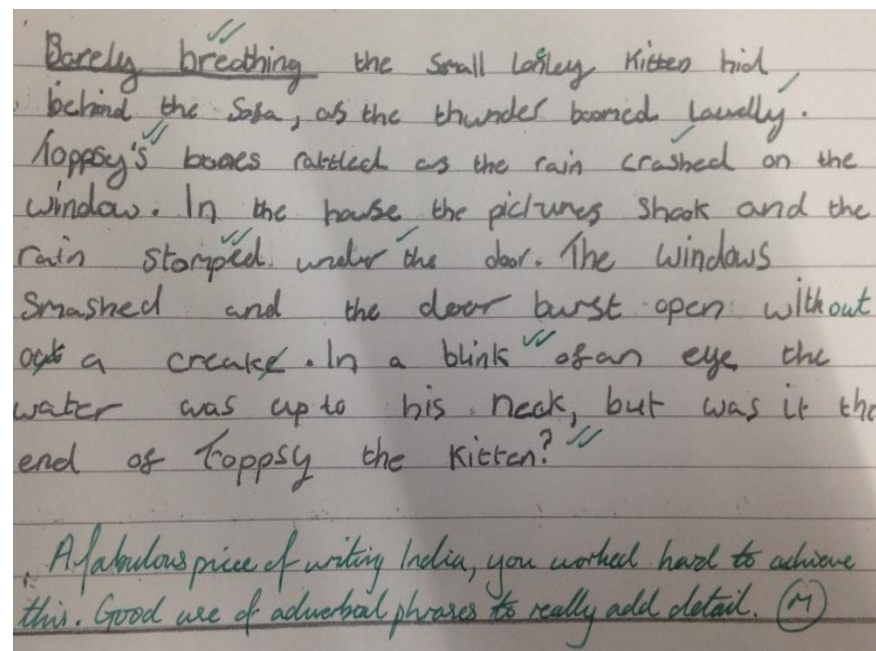 Barely breathing the small lonley kitten hid
behind the sofa, as the thunder boomed lawdly.
Toppsy's bones rattled as the rain crashed on the
window. In the house the pictures shook and the
rain stomped under the door. The windows
smashed and the door burst open without
out a creake. In a blink of an eye the
water was up to his neck, but was it the
end of Toppsy the kitten?
A fabulous piece of writing India, you worked hard to achieve
this. Good use of adverbial phrases to really add detail. M